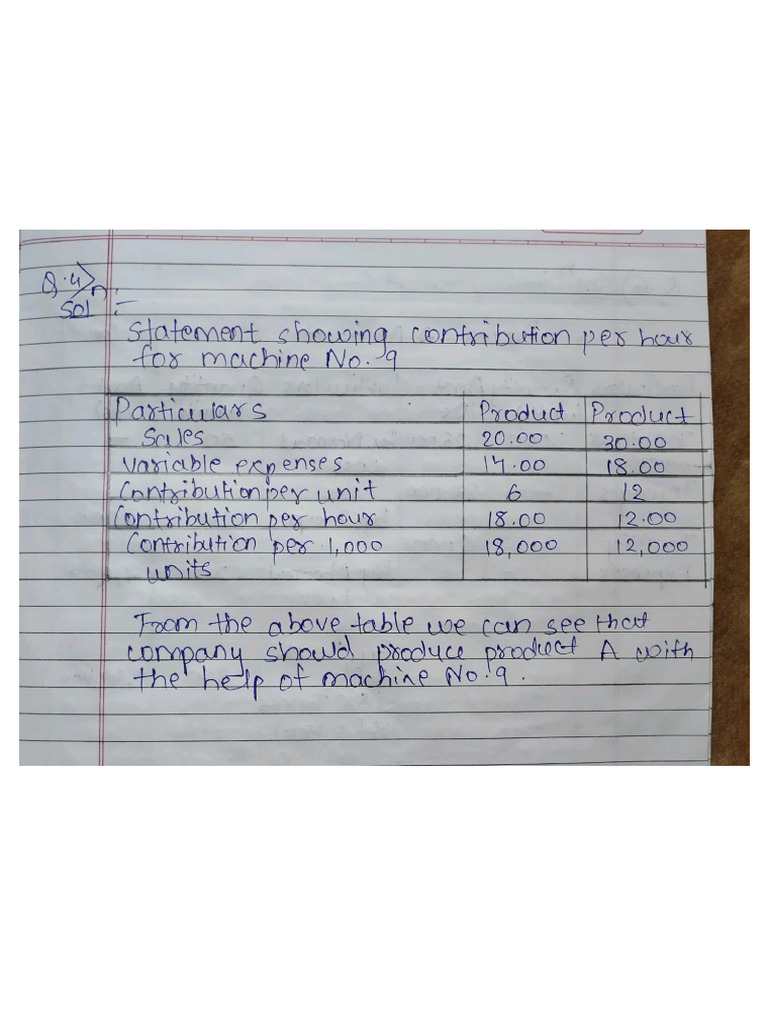 Q.4>
Sol n :-
Statement showing contribution per hour
for machine No. 9
Particulars Product Product
Sales 20.00 30.00
variable expenses 14.00 18.00
Contribution per unit 6 12
Contribution per hour 18.00 12.00
Contribution per 1,000 18,000 12,000
units
From the above table we can see that
company should produce product A with
the help of machine No.9.